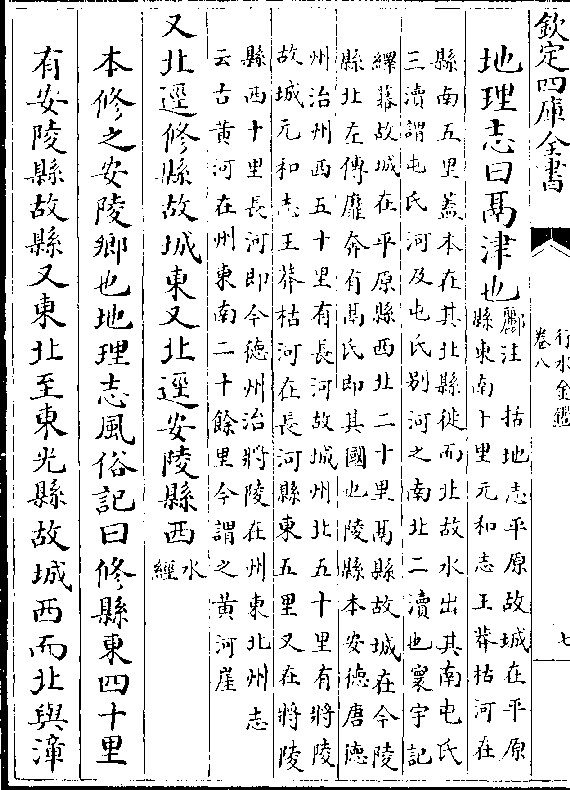 欽定四庫全書
行水金鑑
卷八
七
地理志曰鬲津也
酈注 括地志平原故城在平原
縣東南卜里元和志王莽枯河在
縣南五里蓋本在其北縣徙而北故水出其南屯氏
三瀆謂屯氏河及屯氏别河之南北二瀆也寰宇記
繹幕故城在平原縣西北二十里鬲縣故城在今陵
縣北左傳靡奔有鬲氏即其國也陵縣本安德唐德
州治州西五十里有長河故城州北五十里有將陵
故城元和志王莽枯河在長河縣東五里又在將陵
縣西十里長河即今德州治將陵在州東北州志
云古黄河在州東南二十餘里今謂之黄河崖
又北逕修縣故城東又北逕安陵縣西
水
經
本修之安陵鄉也地理志風俗記曰修縣東四十里
有安陵縣故縣又東北至東光縣故城西而北與漳